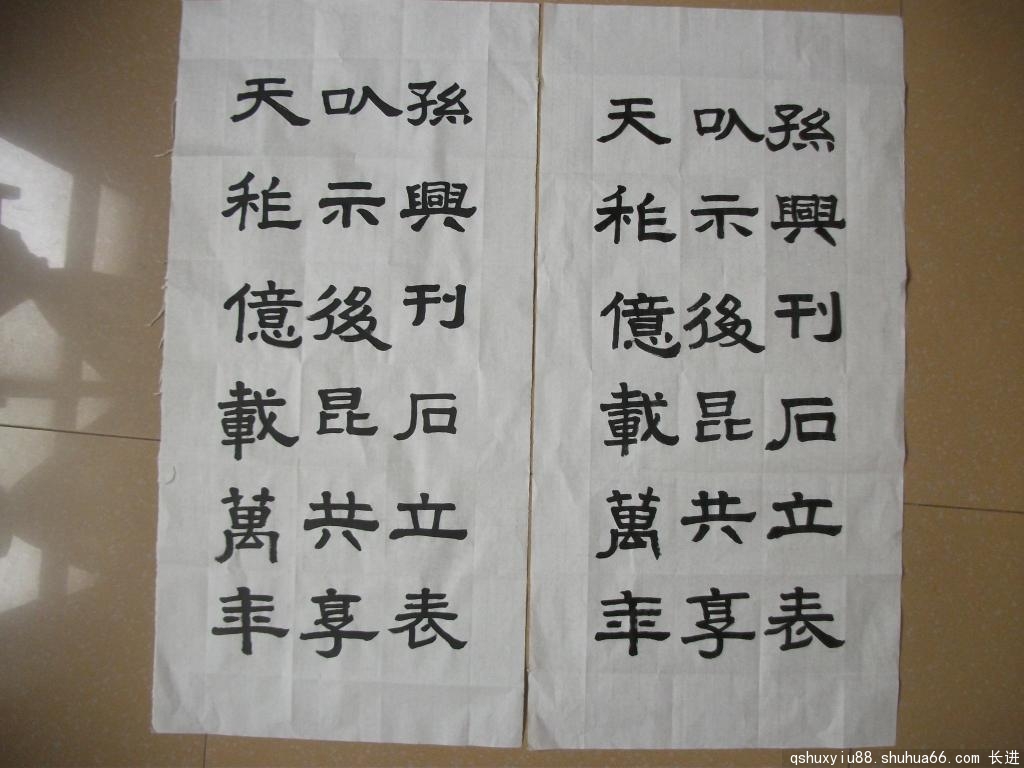 孫興刊石立表
㕥示後昆共享
天祚億載萬年
孫興刊石立表
㕥示後昆共享
天祚億載萬年
qshuxyiu88.shuhua66.com 长进